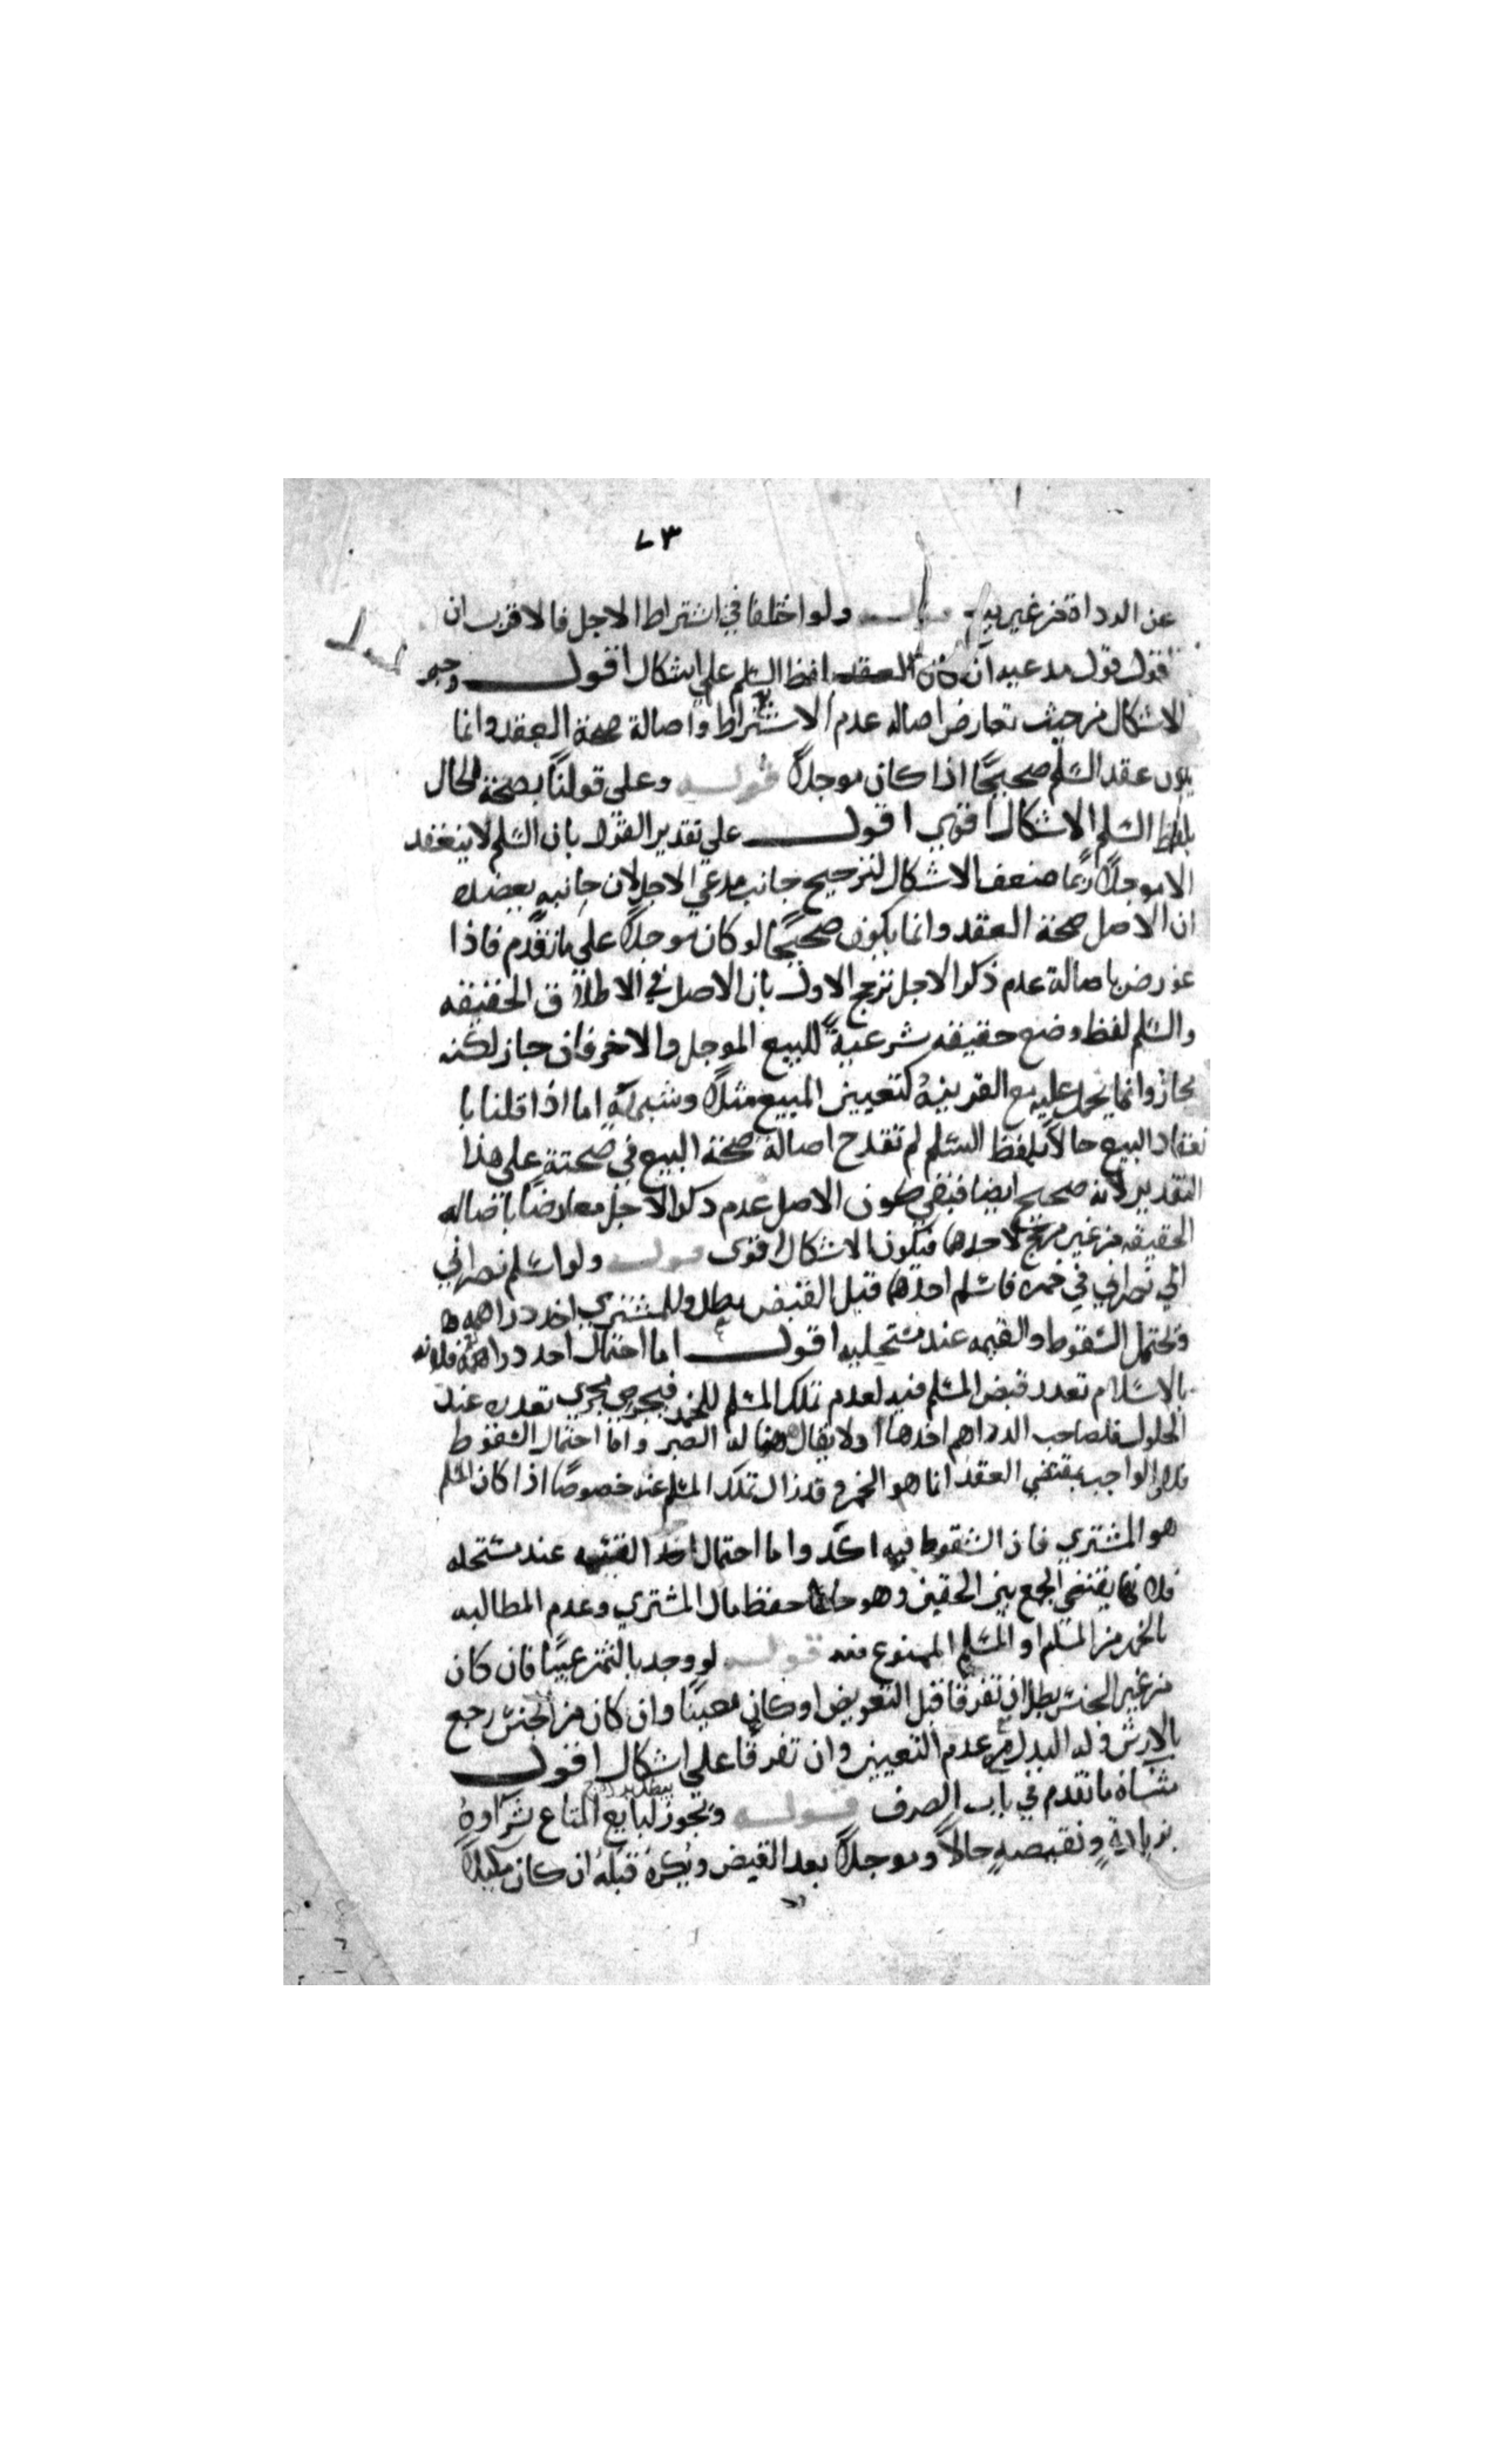 ٧٣
عن الرداة من غير قوله ولو اختلفا في اشتراط الاجل فالاقرب ان
القول قول مدعيه ان كان العقد بلفظ السلم علي اشكال اقول وجه
الاشكال من حيث تعارض اصاله عدم الاشتراط واصالة صحة العقد وانما
يكون عقد السلم صحيحًا اذا كان موجلاً قوله وعلى قولنا بصحة الحال
بلفظ السلم الاشكال اقوي اقول علي تقدير القول بان السلم لا ينعقد
الا موجلاً ربما ضعف الاشكال لترجيح جانب مدعي الاجل لان جانبه يعضده
ان الاصل صحة العقد وانما يكون صحيحًا لو كان موجلاً علي ما تقدم فاذا
عورض باصالة عدم ذكر الاجل ترجح الاول بان الاصل في الاطلاق الحقيقه
والسلم لفظ وضع حقيقه شرعيةً للبيع الموجل والاخر وان جاز لكنه
مجاز وانما يحمل عليه مع القرينة كتعيين المبيع مثلاً وشبهه اما اذا قلنا با
نعقاد البيع حالاً بلفظ السلم لم تقدح اصالة صحة البيع في صحته علي هذا
التقدير لانه صحيح ايضا فبقي كون الاصل عدم ذكر الاجل معارضًا باصاله
الحقيقه من غير مرجح لاحدهما فيكون الاشكال اقوى قوله ولو اسلم نصراني
الي نصراني في خمر فاسلم احدهما قبل القبض بطل وللمشتري اخذ دراهمه
ويحتمل السقوط والقيمه عند مستحليه اقول اما احتمال اخذ دراهمه فلانه
بالاسلام تعذر قبض المسلم فيه لعدم تملك المسلم للخمر فيجري مجري تعذره عند
الحلول فلصاحب الدراهم اخذها ولا يقال هنا له الصبر واما احتمال السقوط
فلان الواجب بمقتضي العقد انما هو الخمر وقد زال تملك المسلم عنه خصوصًا اذا كان المسلم
هو المشتري فان السقوط فيه اكد واما احتمال اخذ القيمه عند مستحله
فلانها يقتضي الجمع بين الحقين وهو حفظ مال المشتري وعدم المطالبه
بالخمر من المسلم او المسلم الممنوع منه قوله لو وجد بالثمن عيبًا فان كان
من غير الجنس بطل ان تفرقا قبل التعويض او كان معينًا وان كان من الجنس رجع
بالارش وله البدل مع عدم التعيين وان تفرقا علي اشكال اقول
منشاه ما تقدم في باب الصرف قوله ويجوز لبايع المتاع شراوه
بزيادةٍ ونقيصةٍ حالاً وموجلاً بعد القبض ويكره قبله ان كان مكيلاً